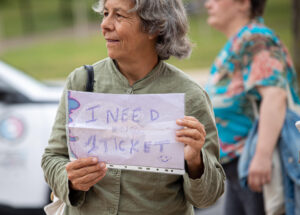 I NEED
1 TICKET